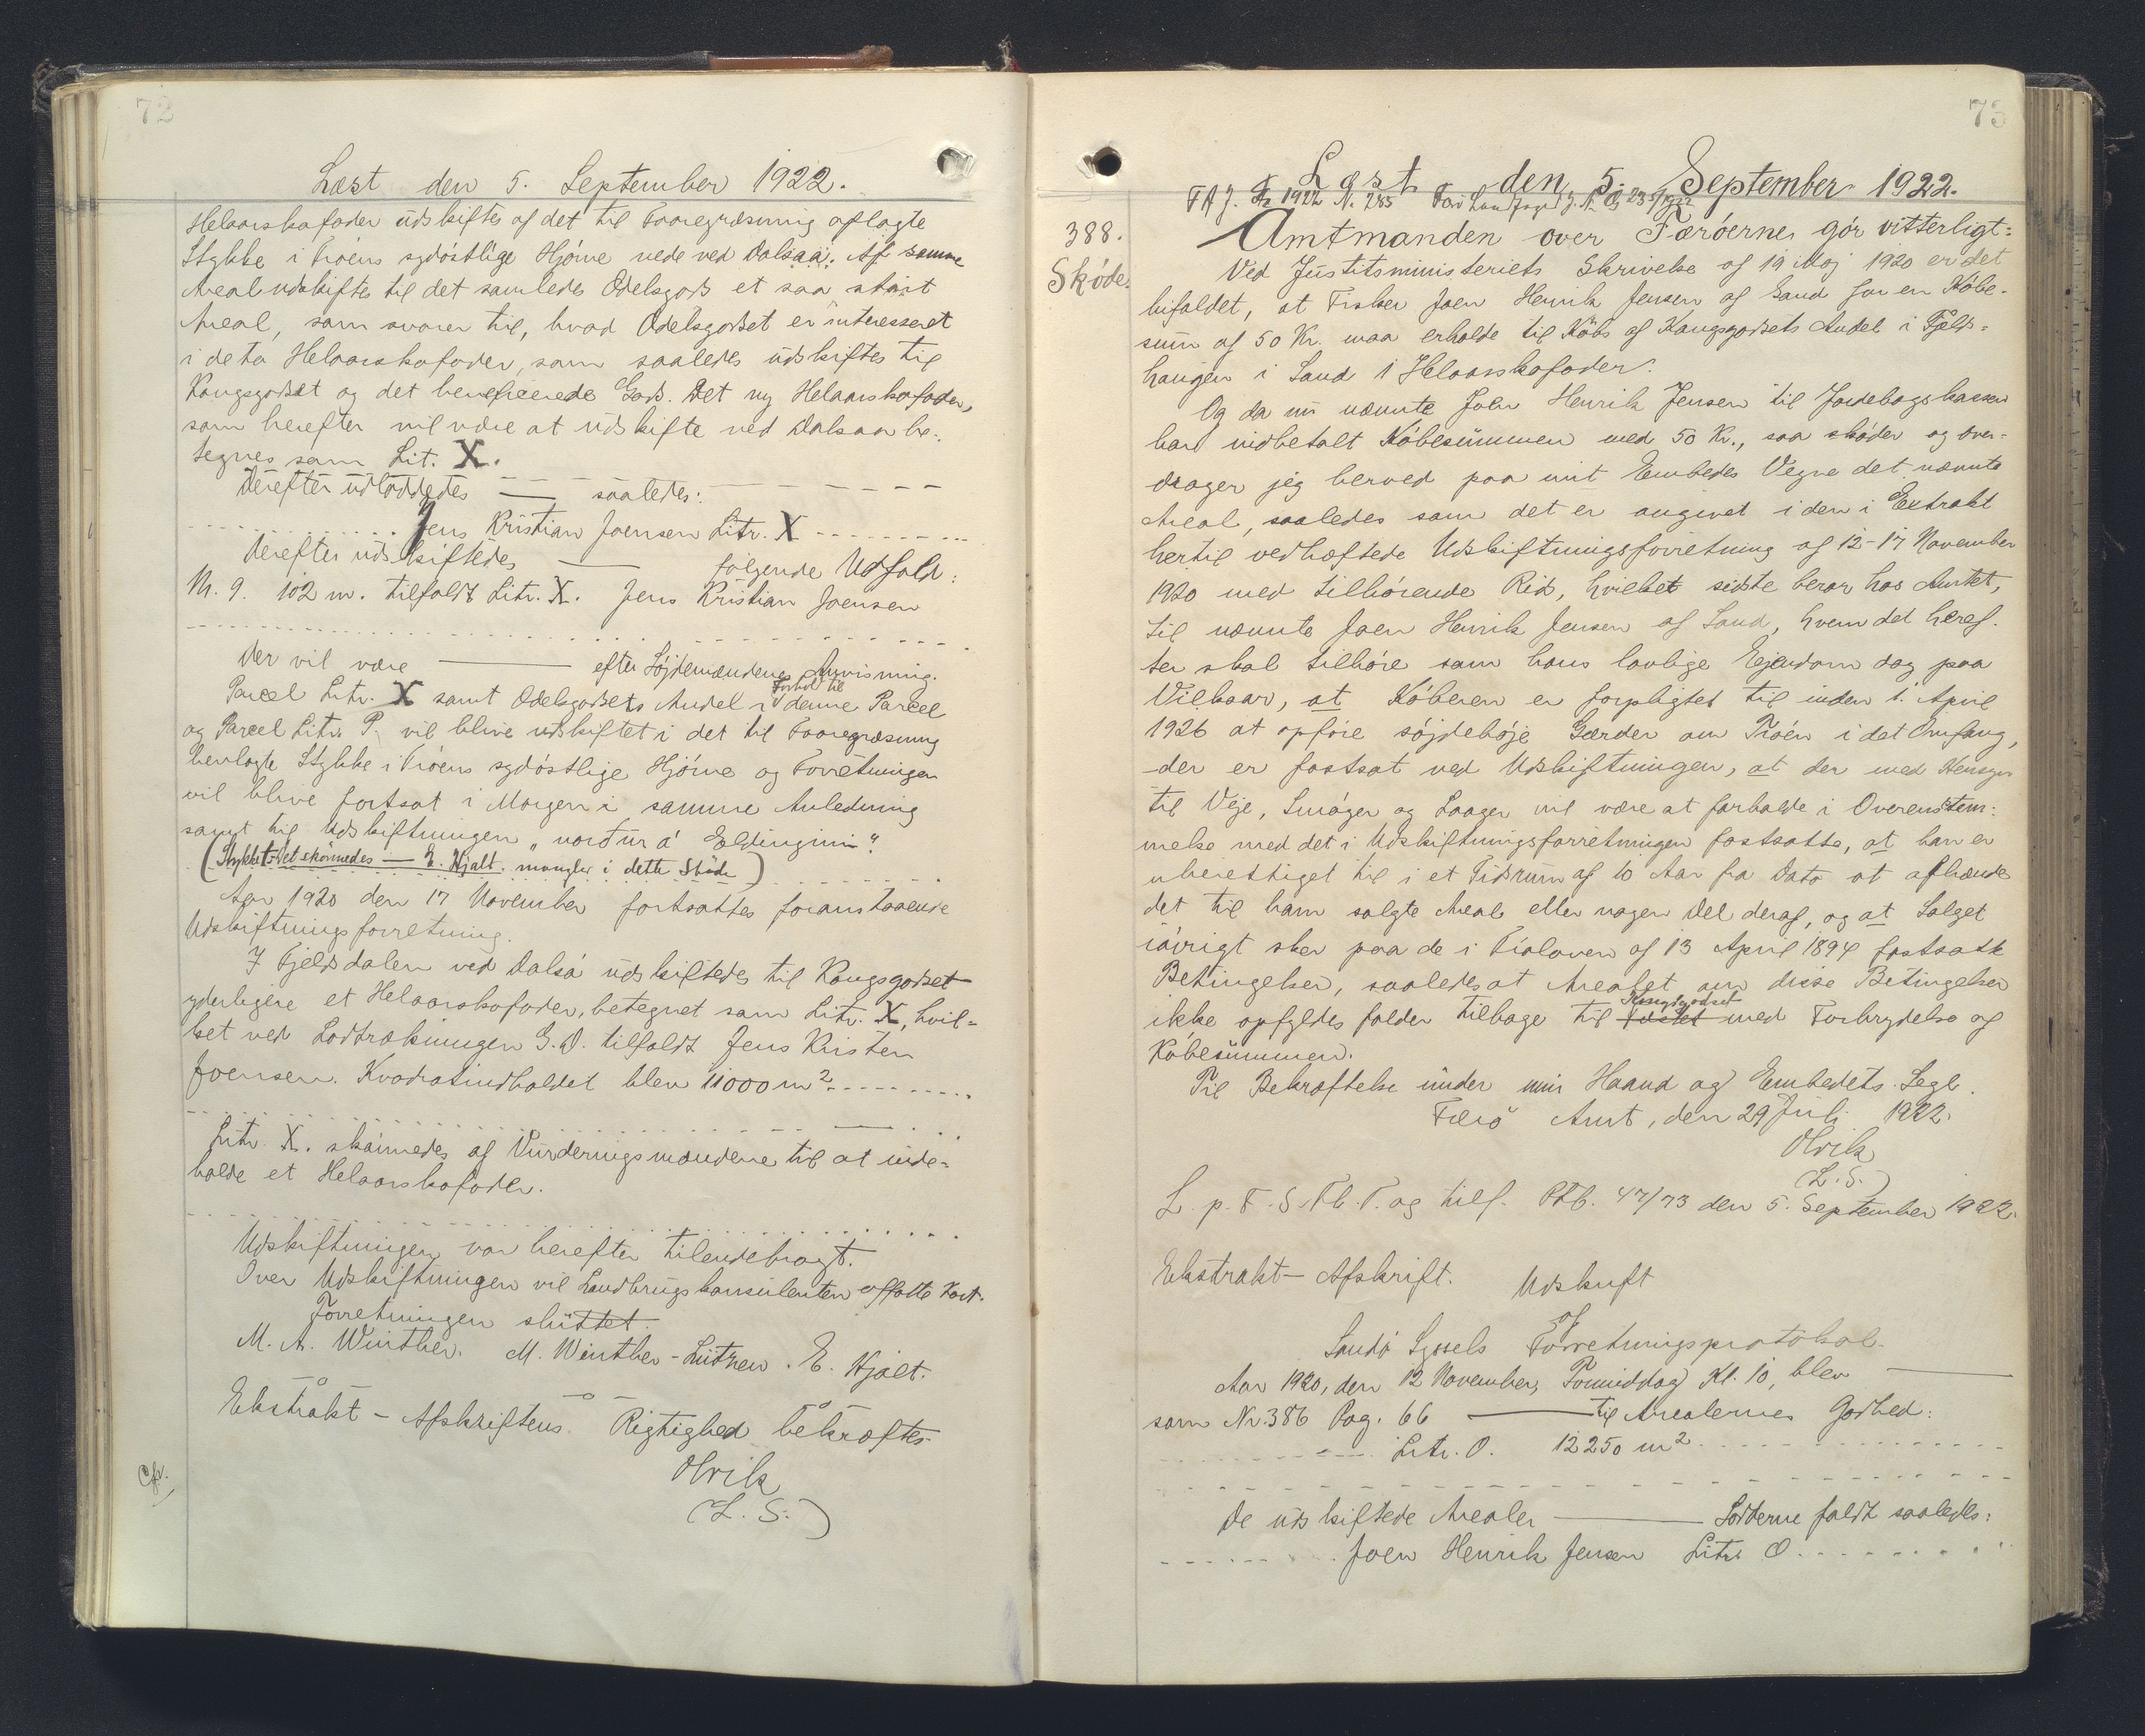 72
Læst den 5. September 1922.
Helaarskofoder udskiftes af det til Faaregræsning aflagte
Stykke i Tröens sydöstlige Hjörne nede ved Dalsaa. Af samme
Areal udskiftes til det samlede Odelsgods et saa stort
Areal, som svarer til, hvad Odelsgodset er interesseret
i de to Helaarskofoder, som saaledes udskiftes til
Kongsgodset og det beneficerede Gods. Det ny Helaarskofoder,
som herefter vil være at udskifte ved Dalsaa be-
tegnes som Lit. X.
Derefter udloddedes — saaledes:
Jens Kristian Joensen Litr. X
Derefter udskiftedes — følgende Udfald:
Nr. 9. 102 m. tilfaldt Litr. X. Jens Kristian Joensen
Der vil være — efter Söjdemændenes Anvisning.
Parcel Litr. X samt Odelsgodsets Andel i Forhold til denne Parcel
og Parcel Litr. P. vil blive udskiftet i det til Faaregræsning
henlagte Stykke i Tröens sydöstlige Hjörne og Forretningen
vil blive fortsat i Morgen i samme Anledning
samt til Udskiftningen "norður á Eldinginni".
(Stykket: Det skönnedes — E. Hjalt. mangler i dette Sköde)
Aar 1920 den 17 November fortsattes foranstaaende
Udskiftningsforretning.
I Fjeldsdalen ved Dalsá udskiftedes til Kongsgodset
yderligere et Helaarskofoder, betegnet som Litr. X, hvil-
ket ved Lodtrækningen G. D. tilfaldt Jens Kristen
Joensen. Kvadratindholdet blev 11000 m²
Litr. X. skönnedes af Vurderingsmændene til at inde-
holde et Helaarskofoder.
Udskiftningen var herefter tilendebragt.
Over Udskiftningen vil Landbrugskonsulenten affatte Kort.
Forretningen sluttet.
M. A. Winther. M. Winther-Lützen. E. Hjalt.
Ekstrakt-Afskriftens Rigtighed bekræftes
Olrik
(L. S.)
Cfr.
73
Læst den 5. September 1922.
388.
Sköde.
Amtmanden over Færöerne gör vitterligt:
Ved Justitsministeriets Skrivelse af 19 Maj 1920 er det
bifaldet, at Fisker Joen Henrik Jensen af Sand for en Köbe-
sum af 50 Kr. maa erholde til Köbs af Kongsgodsets Andel i Fjelds-
haugen i Sand 1 Helaarskofoder.
Og da nu nævnte Joen Henrik Jensen til Jordebogskassen
har indbetalt Köbesummen med 50 Kr., saa sköder og over-
drager jeg herved paa mit Embedes Vegne det nævnte
Areal, saaledes som det er angivet i den i Extrakt
hertil vedhæftede Udskiftningsforretning af 12-17 November
1920 med tilhörende Rids, hvilket sidste beror hos Amtet,
til nævnte Joen Henrik Jensen af Sand, hvem det heref-
ter skal tilhöre som hans lovlige Ejendom dog paa
Vilkaar, at Köberen er forpligtet til inden 1. April
1926 at opföre söjdehöje Gærder om Tröen i det Omfang,
der er fastsat ved Udskiftningen, at der med Hensyn
til Veje, Smöger og Laager vil være at forholde i Overenstem-
melse med det i Udskiftningsforretningen fastsatte, at han er
uberettiget til i et Tidsrum af 10 Aar fra Dato at afhænde
det til ham solgte Areal eller nogen Del deraf, og at Salget
iövrigt sker paa de i Tröloven af 13 April 1894 fastsatte
Betingelser, saaledes at Arealet om disse Betingelser
ikke opfyldes falder tilbage til Kongsgodset med Forbrydelse af
Köbesummen.
Til Bekræftelse under min Haand og Embedets Segl.
Færö Amt, den 29 Juli 1922.
Olrik
(L. S.)
L. p. F. S. Tb. T. og tilf. Ptb. 47/73 den 5. September 1922.
Ekstrakt-Afskrift. Udskrift
af
Sandö Syssels Forretningsprotokol.
Aar 1920, den 12 November, Formiddag Kl. 10, blev —
som Nr. 386 Pag. 66 — til Arealernes Godhed:
Litr. O. 12250 m²
De udskiftede Arealer — Lodderne faldt saaledes:
Joen Henrik Jensen Litr. O.